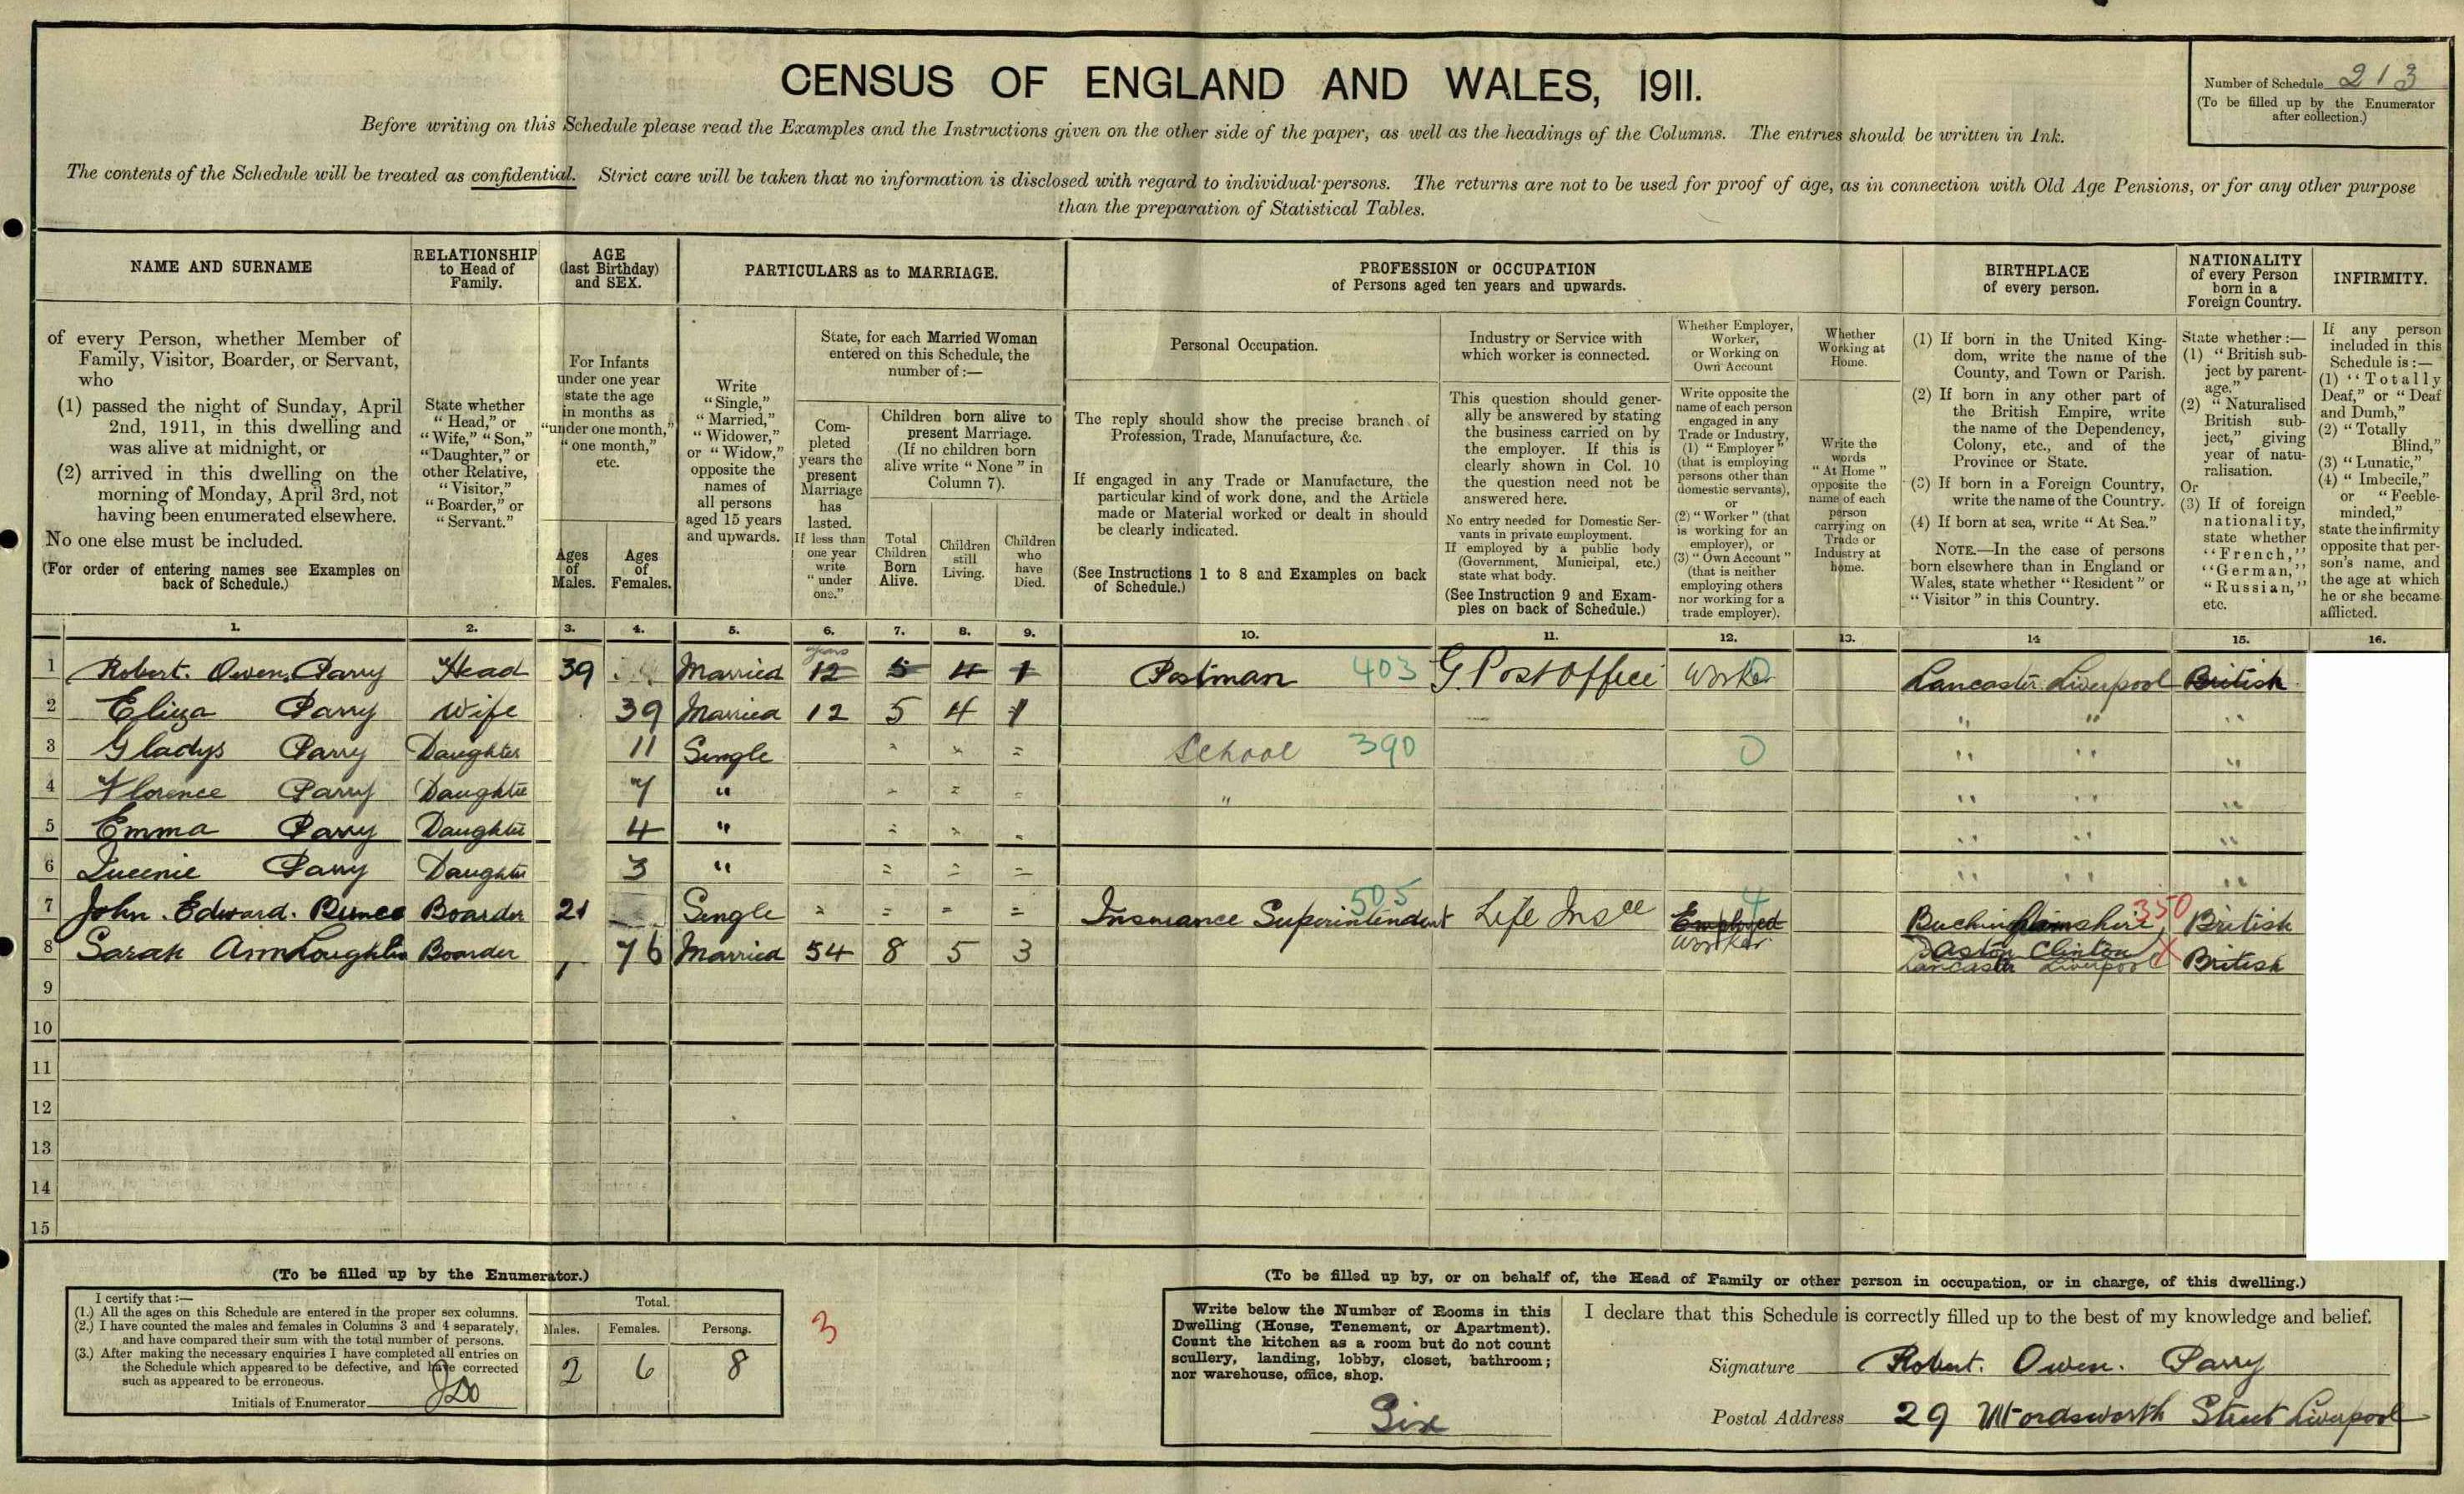 CENSUS OF ENGLAND AND WALES, 1911.
Number of Schedule 213
(To be filled up by the Enumerator
after collection.)
Before writing on this Schedule please read the Examples and the Instructions given on the other side of the paper, as well as the headings of the Columns. The entries should be written in Ink.
The contents of the Schedule will be treated as confidential. Strict care will be taken that no information is disclosed with regard to individual persons. The returns are not to be used for proof of age, as in connection with Old Age Pensions, or for any other purpose
than the preparation of Statistical Tables.
NAME AND SURNAME
of every Person, whether Member of
Family, Visitor, Boarder, or Servant,
who
(1) passed the night of Sunday, April
2nd, 1911, in this dwelling and
was alive at midnight, or
(2) arrived in this dwelling on the
morning of Monday, April 3rd, not
having been enumerated elsewhere.
No one else must be included.
(For order of entering names see Examples on
back of Schedule.)
RELATIONSHIP
to Head of
Family.
State whether
"Head," or
"Wife," "Son,"
"Daughter," or
other Relative,
"Visitor,"
"Boarder," or
"Servant."
AGE
(last Birthday)
and SEX.
For Infants
under one year
state the age
in months as
"under one month,"
"one month,"
etc.
Ages
of
Males.
Ages
of
Females.
PARTICULARS as to MARRIAGE.
Write
"Single,"
"Married,"
"Widower,"
or "Widow,"
opposite the
names of
all persons
aged 15 years
and upwards.
State, for each Married Woman
entered on this Schedule, the
number of :—
Com-
pleted
years the
present
Marriage
has
lasted.
If less than
one year
write
"under
one."
Children born alive to
present Marriage.
(If no children born
alive write "None" in
Column 7).
Total
Children
Born
Alive.
Children
still
Living.
Children
who
have
Died.
PROFESSION or OCCUPATION
of Persons aged ten years and upwards.
Personal Occupation.
The reply should show the precise branch of
Profession, Trade, Manufacture, &c.
If engaged in any Trade or Manufacture, the
particular kind of work done, and the Article
made or Material worked or dealt in should
be clearly indicated.
(See Instructions 1 to 8 and Examples on back
of Schedule.)
Industry or Service with
which worker is connected.
This question should gener-
ally be answered by stating
the business carried on by
the employer. If this is
clearly shown in Col. 10
the question need not be
answered here.
No entry needed for Domestic Ser-
vants in private employment.
If employed by a public body
(Government, Municipal, etc.)
state what body.
(See Instruction 9 and Exam-
ples on back of Schedule.)
Whether Employer,
Worker,
or Working on
Own Account
Write opposite the
name of each person
engaged in any
Trade or Industry,
(1) "Employer"
(that is employing
persons other than
domestic servants),
or
(2) "Worker" (that
is working for an
employer), or
(3) "Own Account"
(that is neither
employing others
nor working for a
trade employer).
Whether
Working at
Home.
Write the
words
"At Home"
opposite the
name of each
person
carrying on
Trade or
Industry at
home.
BIRTHPLACE
of every person.
(1) If born in the United King-
dom, write the name of the
County, and Town or Parish.
(2) If born in any other part of
the British Empire, write
the name of the Dependency,
Colony, etc., and of the
Province or State.
(3) If born in a Foreign Country,
write the name of the Country.
(4) If born at sea, write "At Sea."
NOTE.—In the case of persons
born elsewhere than in England or
Wales, state whether "Resident" or
"Visitor" in this Country.
NATIONALITY
of every Person
born in a
Foreign Country.
State whether :—
(1) "British sub-
ject by parent-
age."
(2) "Naturalised
British sub-
ject," giving
year of natu-
ralisation.
Or
(3) If of foreign
nationality,
state whether
"French,"
"German,"
"Russian,"
etc.
INFIRMITY.
If any person
included in this
Schedule is :—
(1) "Totally
Deaf," or "Deaf
and Dumb,"
(2) "Totally
Blind,"
(3) "Lunatic,"
(4) "Imbecile,"
or "Feeble-
minded,"
state the infirmity
opposite that per-
son's name, and
the age at which
he or she became
afflicted.
1. 2. 3. 4. 5. 6. 7. 8. 9. 10. 11. 12. 13. 14 15. 16.
years
1 Robert. Owen. Parry Head 39 Married 12 5 4 1 Postman 403 G. Post Office Worker Lancaster Liverpool British
2 Eliza Parry Wife 39 Married 12 5 4 1 " " "
3 Gladys Parry Daughter 11 Single " " = School 390 0 " " "
4 Florence Parry Daughter 7 " " = - " " " "
5 Emma Parry Daughter 4 " = " = " " "
6 Queenie Parry Daughter 3 " = = = " " "
7 John. Edward. Bunce Boarder 21 Single = = = = Insurance Superintendent 505 Life Insce Employed Worker 4 Buckinghamshire, 350 British
Aston Clinton
8 Sarah Ann Loughlin Boarder 76 Married 54 8 5 3 Lancaster Liverpool X British
9
10
11
12
13
14
15
(To be filled up by the Enumerator.)
I certify that :—
(1.) All the ages on this Schedule are entered in the proper sex columns.
(2.) I have counted the males and females in Columns 3 and 4 separately,
and have compared their sum with the total number of persons.
(3.) After making the necessary enquiries I have completed all entries on
the Schedule which appeared to be defective, and have corrected
such as appeared to be erroneous.
Initials of Enumerator
Total.
Males. Females. Persons.
2 6 8
3
(To be filled up by, or on behalf of, the Head of Family or other person in occupation, or in charge, of this dwelling.)
Write below the Number of Rooms in this
Dwelling (House, Tenement, or Apartment).
Count the kitchen as a room but do not count
scullery, landing, lobby, closet, bathroom;
nor warehouse, office, shop.
Six
I declare that this Schedule is correctly filled up to the best of my knowledge and belief.
Signature Robert. Owen. Parry
Postal Address 29 Wordsworth Street Liverpool